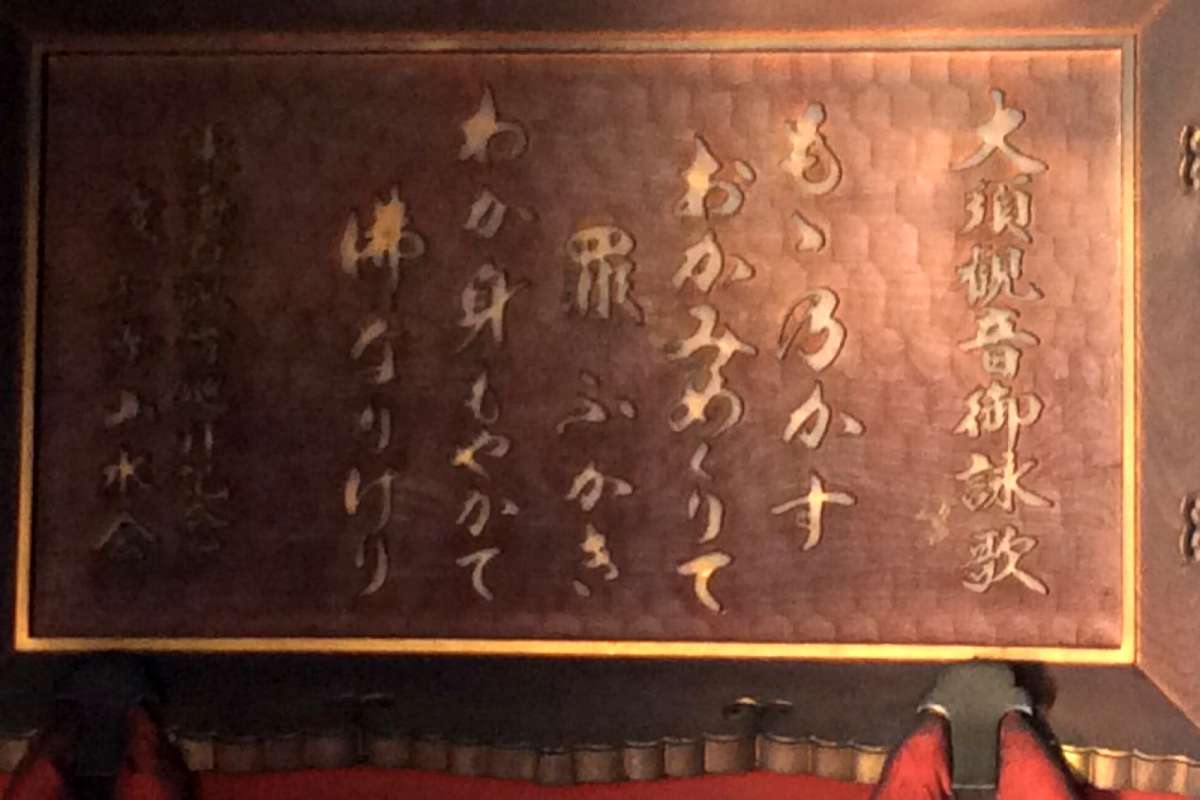 大須観音御詠歌
もゝ乃かす
おかみめくりて
罪ふかき
わか身もやかて
佛なりけり